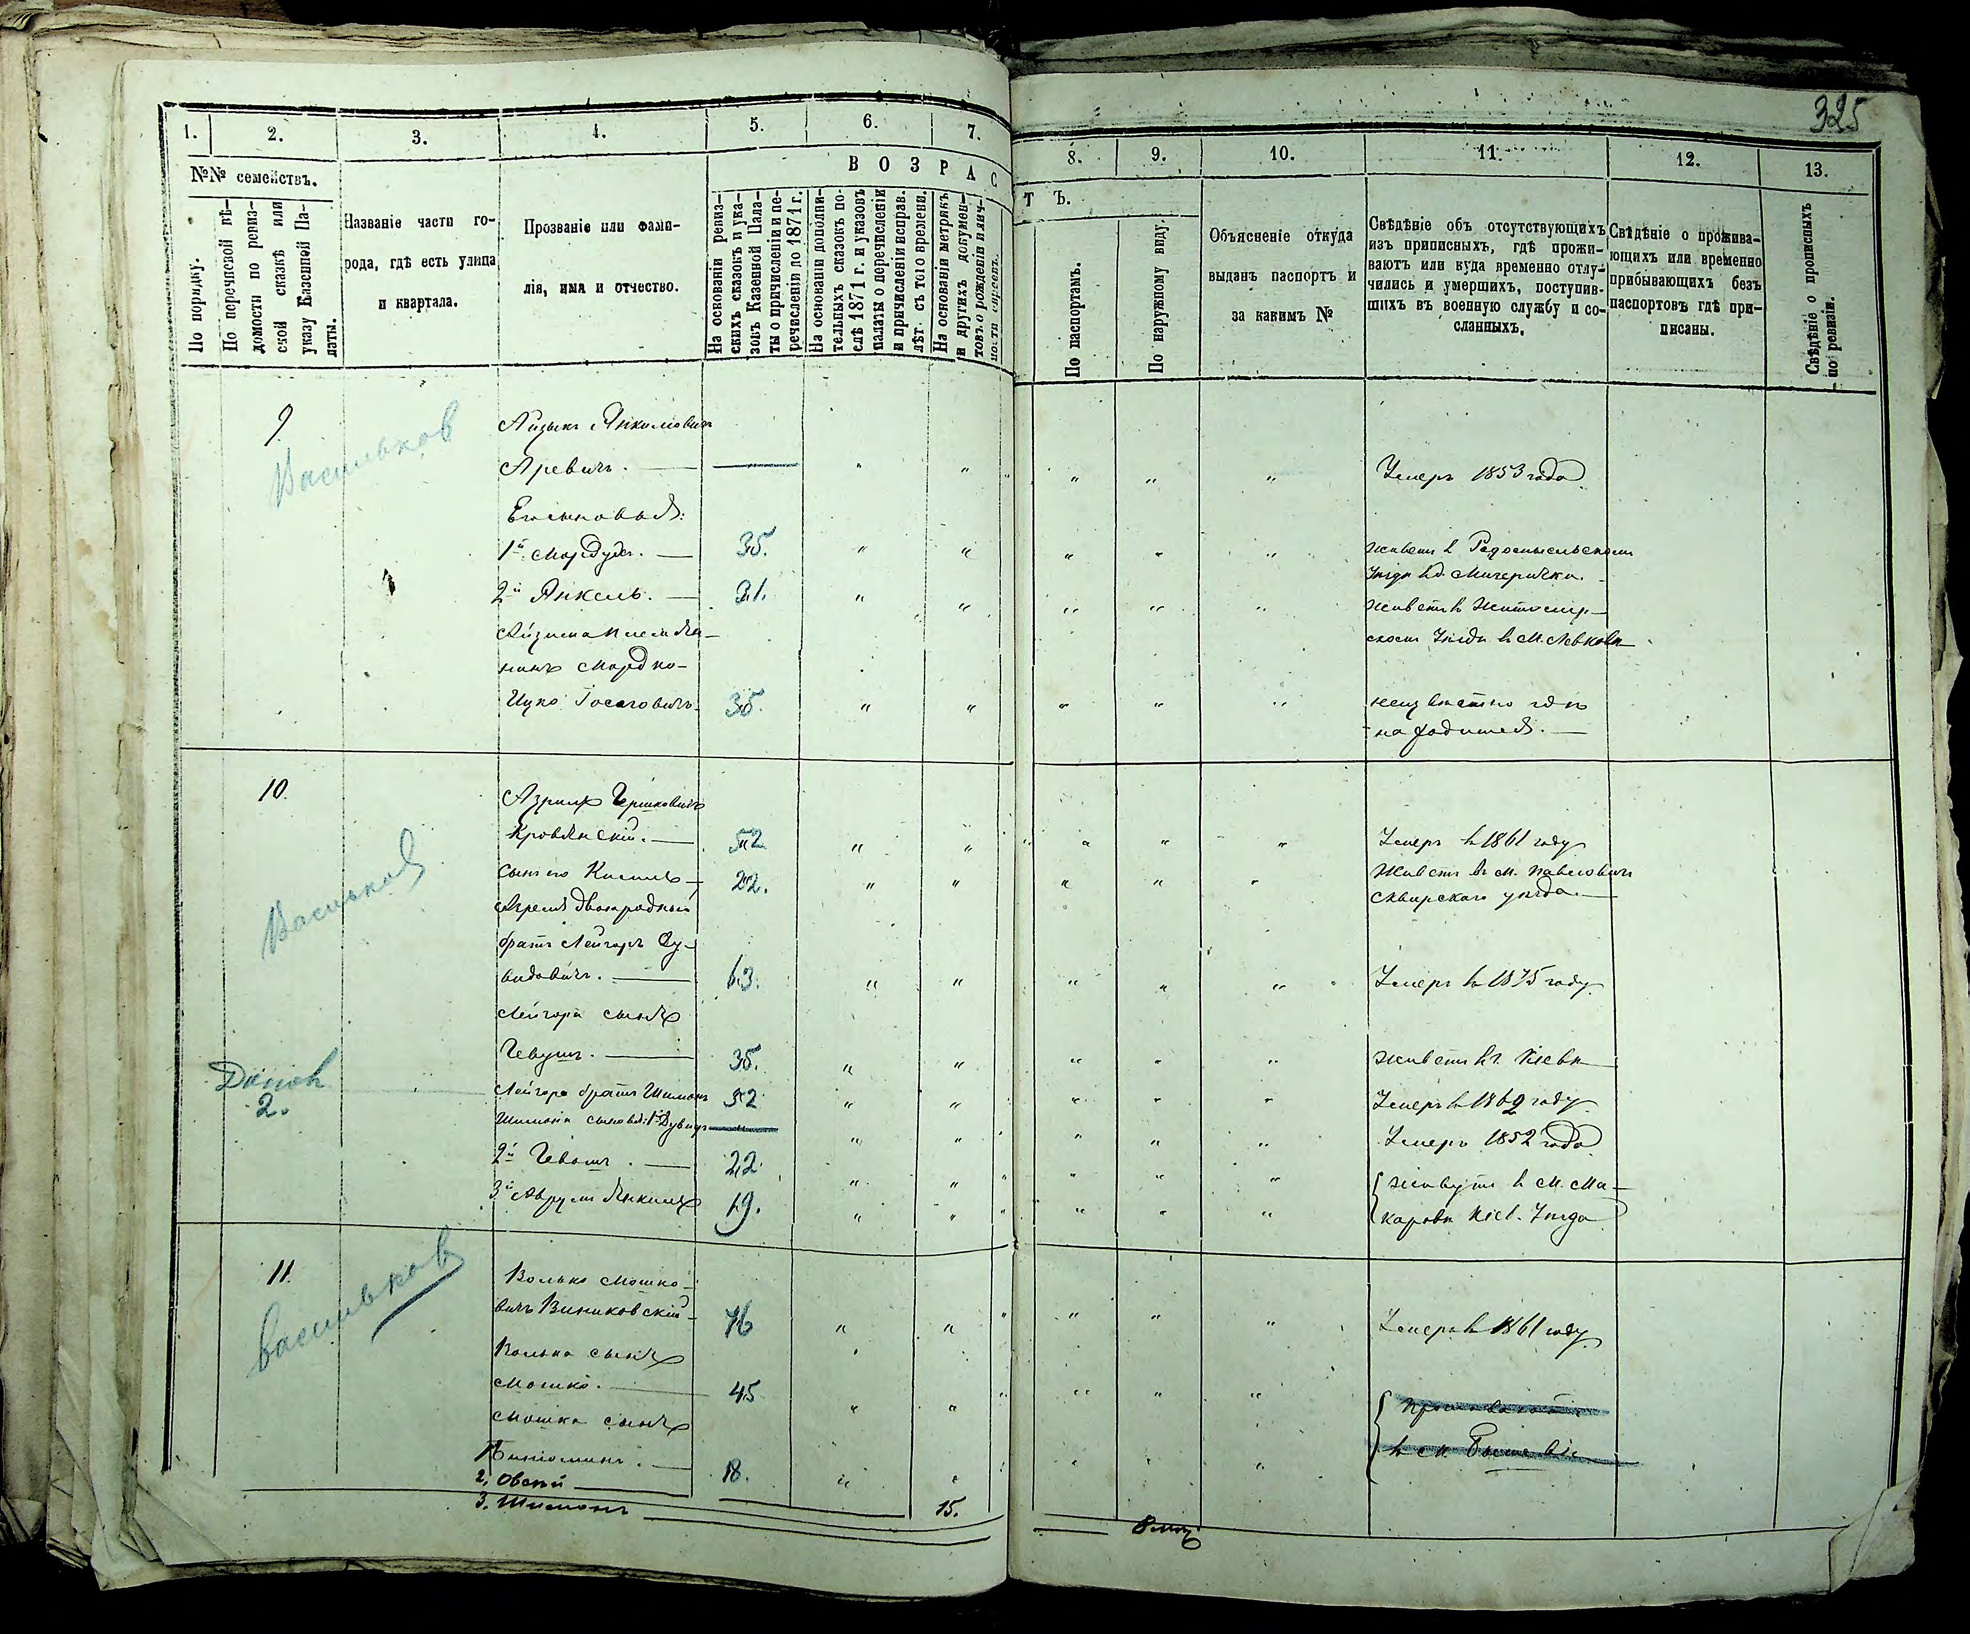 325
1. 2. 3. 4. 5. 6. 7.
8. 9. 10. 11. 12. 13.
№№ семействъ.
По порядку.
По перечневой вѣ-
домости по ревиз-
ской сказкѣ или
указу Казенной Па-
латы.
Названіе части го-
рода, гдѣ есть улица
и квартала.
Прозваніе или фами-
лія, имя и отчество.
В О З Р А С
Т Ъ.
На основаніи ревиз-
скихъ сказокъ и ука-
зовъ Казенной Пала-
ты о причисленіи и пе-
речисленіи до 1871 г.
На основаніи дополни-
тельныхъ сказокъ по-
слѣ 1871 г. и указовъ
палаты о перечисленіи
и причисленіи исправ.
лѣт съ того времени.
На основаніи метрикъ
и другихъ докумен-
товъ о рожденіи
По паспортамъ.
По наружному виду.
Объясненіе откуда
выданъ паспортъ и
за какимъ №
Свѣдѣніе объ отсутствующихъ
изъ приписныхъ, гдѣ прожи-
ваютъ или куда временно отлу-
чились и умершихъ, поступив-
шихъ въ военную службу и со-
сланныхъ.
Свѣдѣніе о прожива-
ющихъ или временно
прибывающихъ безъ
паспортовъ гдѣ при-
писаны.
Свѣдѣніе о прописныхъ
по ревизіи.
9 Васильков
Айзыкъ Янкимовичъ
Аревичъ. — Умеръ 1853 года
Его сыновья:
1й Мордухъ. — 35. живетъ в Радомысльскомъ
уѣздѣ в д. Мигерички.
2й Янкель. — 31. живетъ в Житомир-
скомъ уѣздѣ в м. Левковѣ
Айзика племян-
никъ Мордко-
Ицко Іосіовичъ 35. неизвѣстно гдѣ
находится. —
10. Васильков
Азрилъ Гершковичъ
Кровянскій. — 52 Умеръ в 1861 году
Сынъ его Кисиль — 22. Живетъ въ м. Паволочи
Сквирскаго уѣзда —
Азрила двоюродный
братъ Лейзоръ Ду-
видовичъ. — 63. Умеръ в 1875 году
Лейзора сынъ
Гевушъ. — 35. живетъ въ Кіевѣ
2.
Лейзора братъ Шимонъ 52 Умеръ в 1869 году
Шимона сыновья: 1й Дувидъ — Умеръ 1852 года
2й Гевошъ. — 22. живутъ в м. Ма-
3й Аврумъ Янкиль 19. каровѣ Кіев. Уѣзда
11. Васильков
Волько Мошко-
вичъ Виниковскій 76 Умеръ в 1861 году
Волька сынъ
Мошко. — 45
Мошка сынъ
1 Бинюминъ. — 18.
2. Овсѣй
3. Шимонъ 15.
8 мѣс